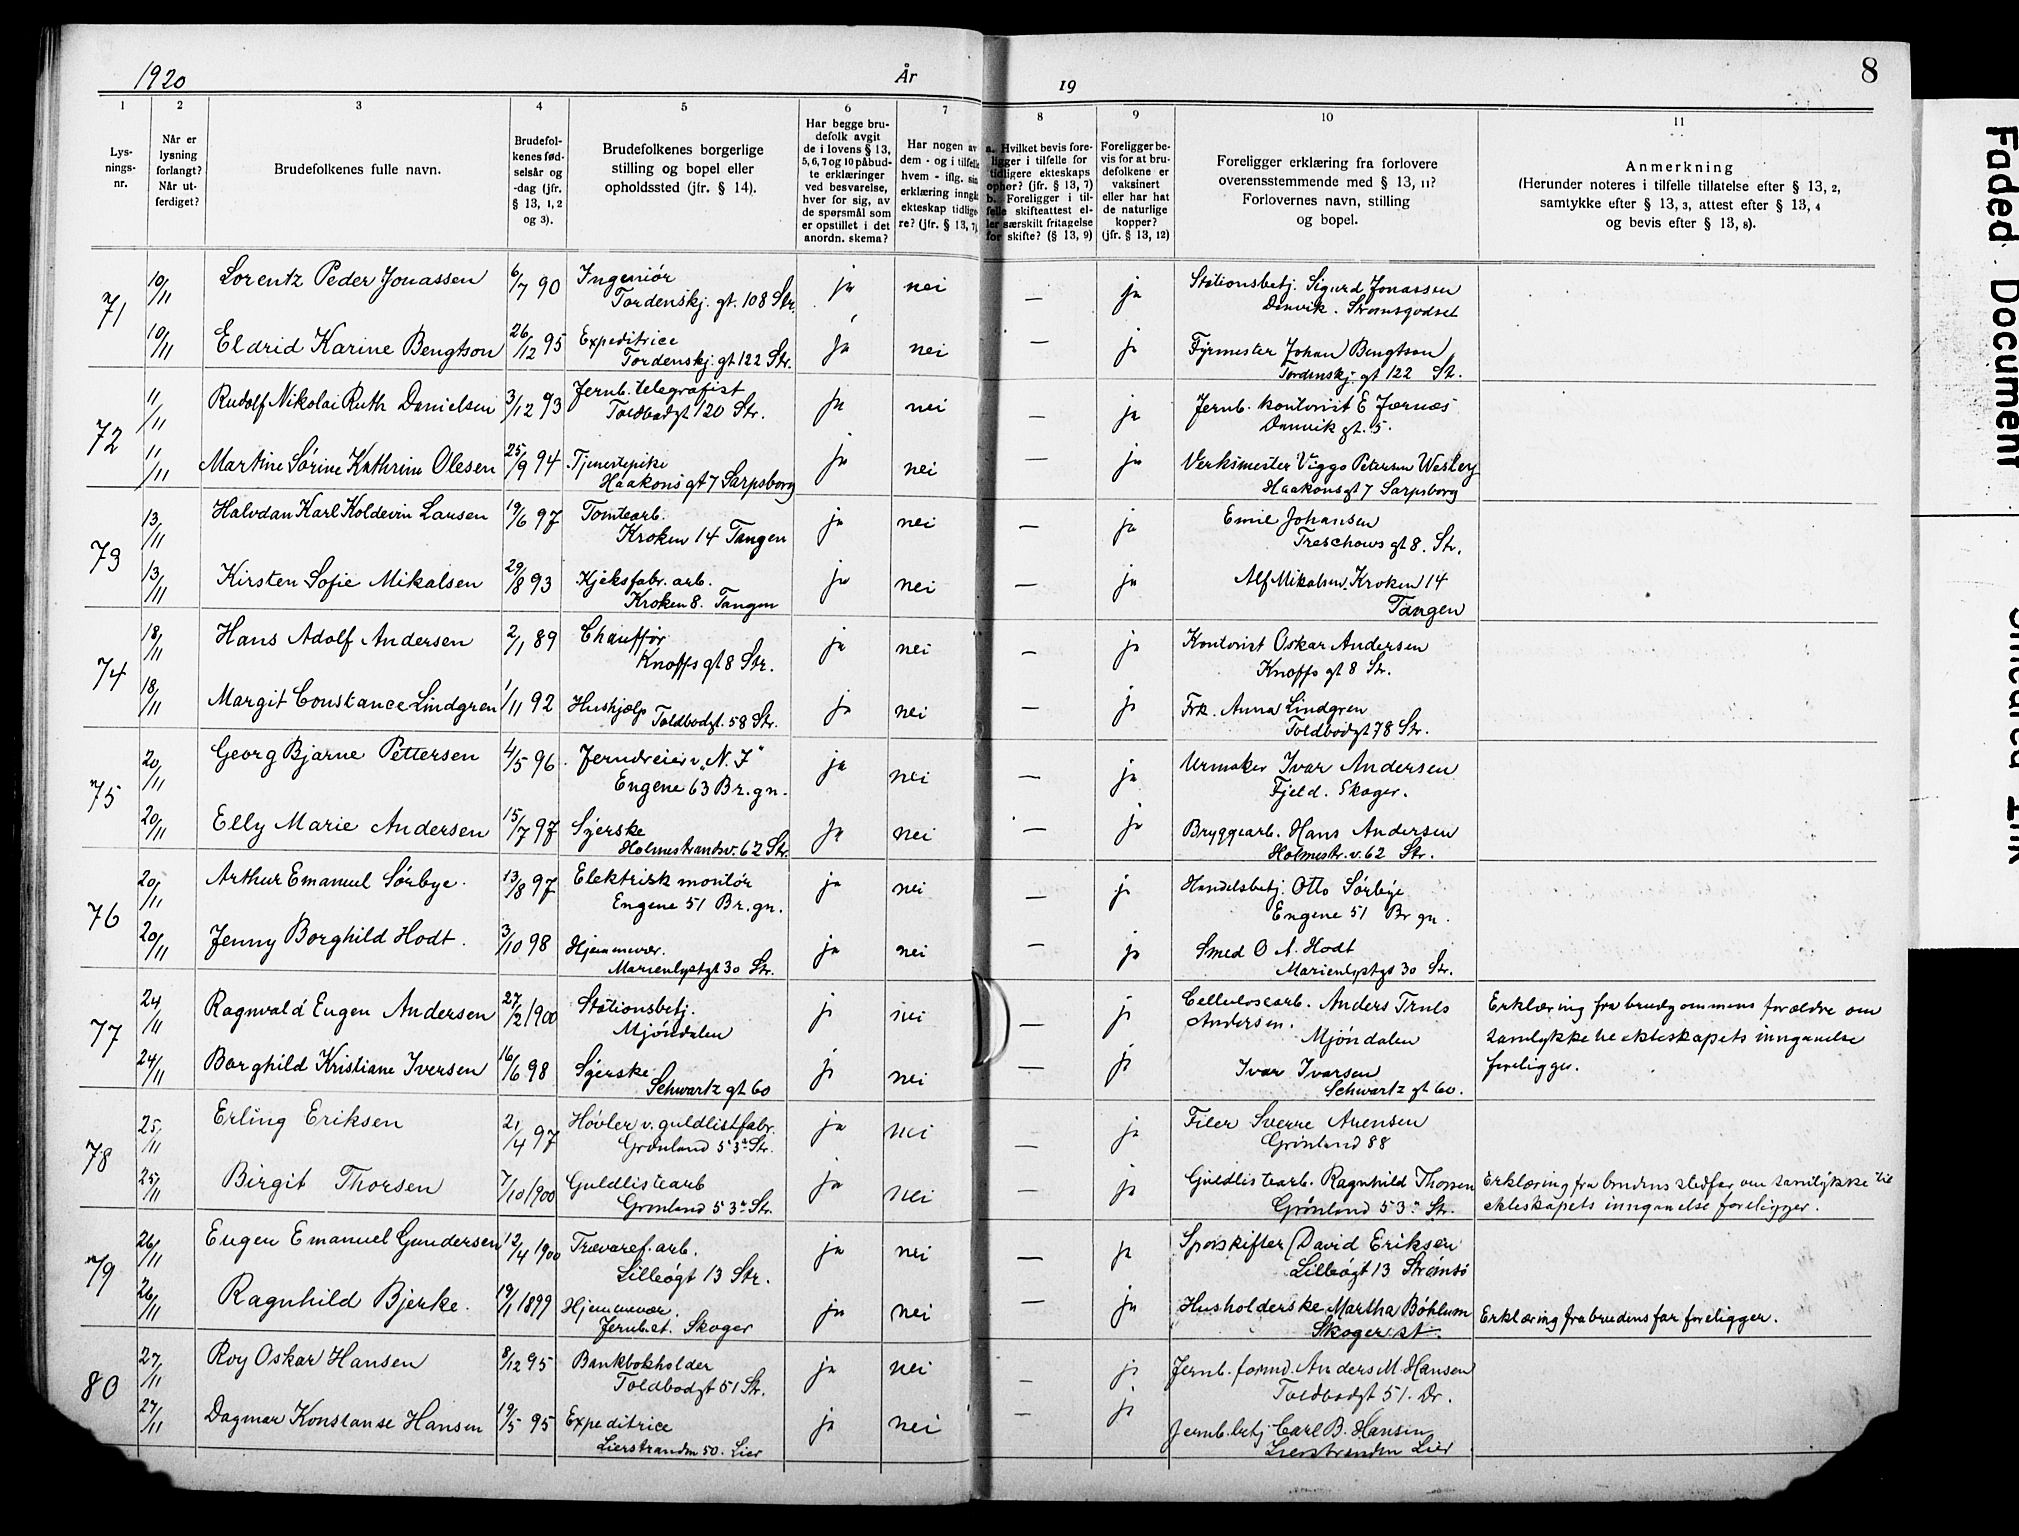 1920
År
19
8
1
2
3
4
5
6
7
8
9
10
11
Lys-
nings-
nr.
Når er
lysning
forlangt?
Når ut-
ferdiget?
Brudefolkenes fulle navn.
Brudefol-
kenes fød-
selsår og
-dag (jfr.
§ 13, 1, 2
og 3).
Brudefolkenes borgerlige
stilling og bopel eller
opholdssted (jfr. § 14).
Har begge bru-
defolk avgit
de i lovens § 13,
5, 6, 7 og 10 påbud-
te erklæringer
ved besvarelse,
hver for sig, av
de spørsmål som
er opstillet i det
anordn. skema?
Har nogen av
dem - og i tilfelle
hvem - iflg. sin
erklæring inngå
ekteskap tidlige
re? (jfr. § 13, 7)
a. Hvilket bevis fore-
ligger i tilfelle for
tidligere ekteskaps
ophør? (jfr. § 13, 7)
b. Foreligger i til-
felle skifteattest el-
ler særskilt fritagelse
for skifte? (§ 13, 9)
Foreligger be-
vis for at bru-
defolkene er
vaksinert
eller har hat
de naturlige
kopper?
(jfr. § 13, 12)
Foreligger erklæring fra forlovere
overensstemmende med § 13, 11?
Forlovernes navn, stilling
og bopel.
Anmerkning
(Herunder noteres i tilfelle tillatelse efter § 13, 2,
samtykke efter § 13, 3, attest efter § 13, 4
og bevis efter § 13, 8).
71
10/11 Lorentz Peder Jonassen 6/7 90 Ingeniør ja nei — ja Stationsbetj. Sigurd Jonassen
Tordenskj. gt. 108 Str. Danvik. Strømsgodset
10/11 Eldrid Karine Bengtson 26/12 95 Expeditrice ja nei — ja Fyrmester Johan Bengtson
Tordenskj. gt 122 Str. Tordenskj. gt 122 St.
72
11/11 Rudolf Nikolai Ruth Danielsen 3/12 93 Jernb. telegrafist ja nei — ja Jernb. kontorist E Jærnæs
Toldbodgt 120 Str. Danvik gt. 5.
11/11 Martine Sørine Kathrine Olesen 25/9 94 Tjenestepike ja nei — ja Verksmester Viggo Petersen Wesley
Haakons gt 7 Sarpsborg Haakons gt 7 Sarpsborg
73
13/11 Halvdan Karl Koldevin Larsen 19/6 97 Tomtearb. ja nei — ja Emil Johansen
Kroken 14 Tangen Treschows gt 8. Str.
13/11 Kirsten Sofie Mikalsen 29/8 93 Kjeksfabr. arb. ja nei — ja Alf Mikalsen, Kroken 14
Kroken 8. Tangen Tangen
74
18/11 Hans Adolf Andersen 2/1 89 Chauffør ja nei — ja Kontorist Oskar Andersen
Knoffs gt 8 Str. Knoffs gt 8 Str.
18/11 Margit Constance Lindgren 1/11 92 Hushjælp ja nei — ja Frk. Anna Lindgren
Toldbodgt. 58 Str. Toldbodgt 78 Str.
75
20/11 Georg Bjarne Pettersen 4/5 96 Jerndreier v. „N. J" ja nei — ja Urmaker Ivar Andersen
Engene 63 Br. gn. Fjeld. Skoger.
20/11 Elly Marie Andersen 15/7 97 Syerske ja nei — ja Bryggearb. Hans Andersen
Holmestrandsv. 62 Str. Holmestr. v. 62 Str.
76
20/11 Arthur Emanuel Sørbye. 13/8 97 Elektrisk montør ja nei — ja Handelsbetj. Otto Sørbye
Engene 51 Br. gn. Engene 51 Br gn.
20/11 Jenny Borghild Hodt. 3/10 98 Hjemmevær. ja nei — ja Smed O A. Hodt
Marienlystgt 30 Str. Marienlystgt 30 Str.
77
24/11 Ragnvald Eugen Andersen 27/2 1900 Stationsbetj. ja nei — ja Celluloscarb. Anders Truls Erklæring fra brudgommens forældre om
Mjøndalen Andersen. Mjøndalen samtykke til ekteskapets inngaaelse
24/11 Borghild Kristiane Iversen 16/6 98 Syerske ja nei — ja Ivar Ivarsen foreligger.
Schwartz gt 60 Schwartz gt 60.
78
25/11 Erling Eriksen 21/4 97 Høvler v. guldlistfabr. ja nei — ja Filer Sverre
Grønland 53a Str. Grønland 88
25/11 Birgit Thorsen 7/10 1900 Guldlistearb ja nei — ja Guldlistearb. Ragnhild Thorsen Erklæring fra brudens stedfar om samtykke til
Grønland 53a Str. Grønland 53a Str. ekteskapets inngaaelse foreligger.
79
26/11 Eugen Emanuel Gundersen 12/4 1900 Trævaref. arb. ja nei — ja Sporskifter David Eriksen
Lilleøgt 13 Str. Lilleøgt 13 Strømsø
26/11 Ragnhild Bjerke. 19/1 1899 Hjemmevær. ja nei — ja Husholderske Martha Bøhlum Erklæring fra brudens far foreligger.
Jernb. st. Skoger Skoger st.
80
27/11 Roy Oskar Hansen 8/12 95 Bankbokholder ja nei — ja Jernb. formd. Anders M. Hansen
Toldbodgt 51 Str. Toldbodgt 51. Dr.
27/11 Dagmar Konstanse Hansen 19/5 95 Expeditrice ja nei — ja Jernb. betj Carl B. Hansen
Lierstranden 50. Lier Lierstranden Lier
Faded Document
Smeared Ink